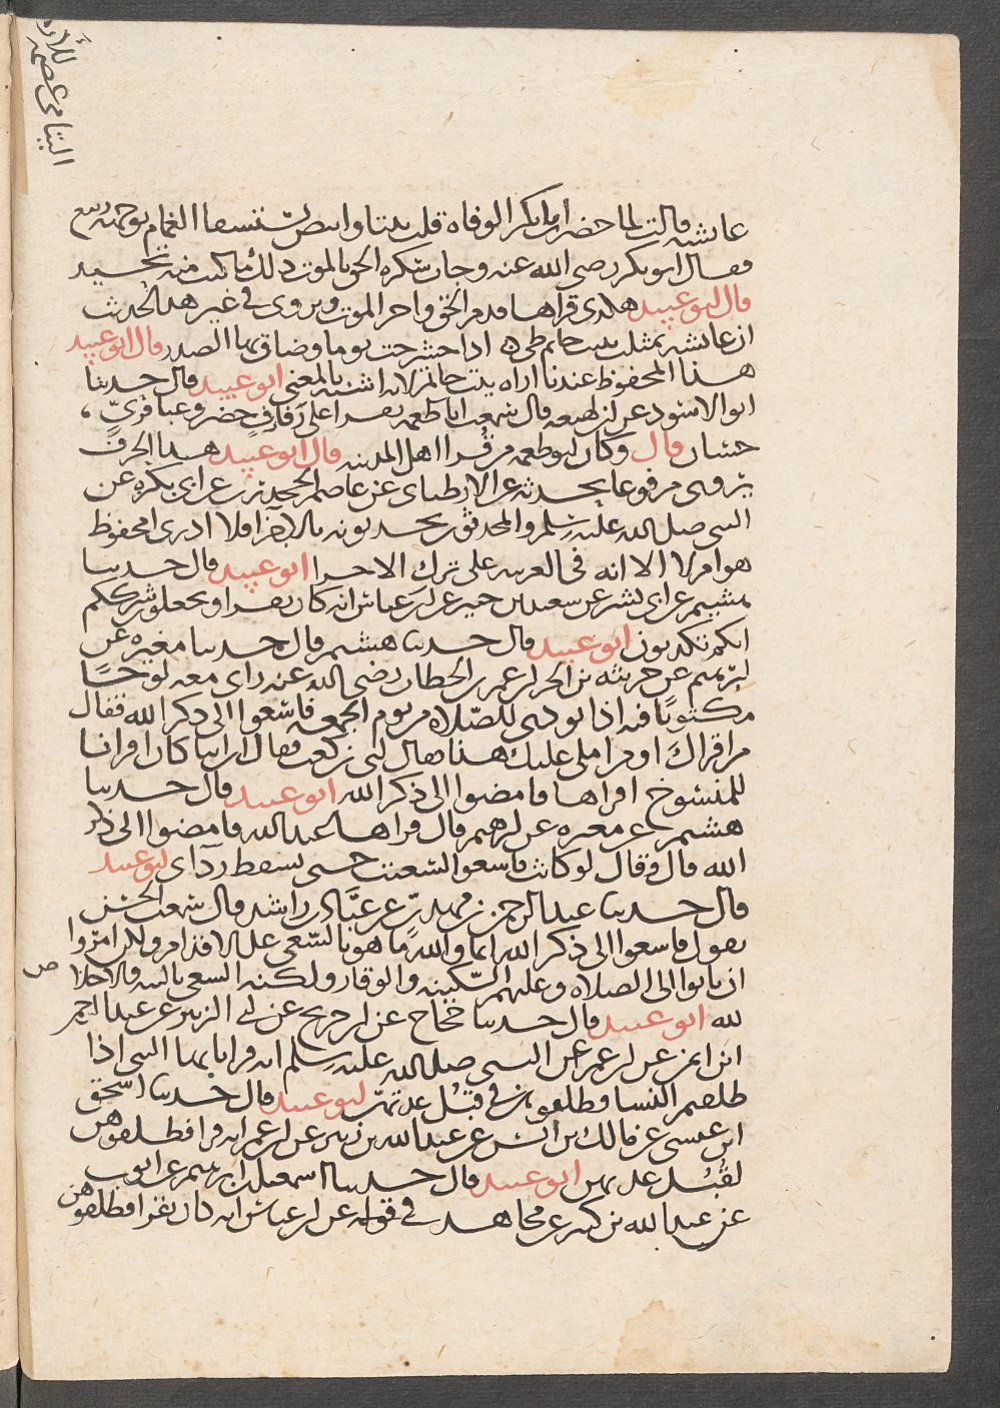 عايشه قالت لما حضر ابا بكر الوفاه قلت بيتا وابيض يستسقا الغمام بوجهه ربيع
فقال ابو بكر رضى الله عنه وجات سكره الحق بالموت ذلك ما كنت منه تحيد
قال ابو عبيد هكذى قراها قدم الحق واخر الموت ويروى في غير هذا الحديث
ان عايشه تمثلت ببيت حاتم طى اذا حشرجت يوما وضاق بها الصدر قال ابو عبيد
هذا المحفوظ عندنا اراه بيت حاتم لانه اشبه بالمعنى ابو عبيد قال حدثنا
ابو الاسود عن ابن لهيعه قال سمعت ابا طعمه يقرا على رفارف خضر وعباقرى
حسان قال وكان ابو طعمه من قرا اهل المدينه قال ابو عبيد هذا الحرف
يروى مرفوعا يحدثه عن الارطباى عن عاصم الجحدرى عن ابى بكره عن
النبى صلى الله عليه وسلم والمحدثون يحدثونه بالاجرا فلا ادرى امحفوظ
هو ام لا الا انه فى العربيه على ترك الاجرا ابو عبيد قال حدثنا
هشيم عن ابى بشر عن سعيد بن جبير عن ابن عباس انه كان يقرا وتجعلون شكركم
انكم تكذبون ابو عبيد قال حدثنا هشيم قال حدثنا مغيره عن
ابرهيم عن خرشه بن الحر ان عمر بن الخطاب رضى الله عنه راى معه لوحا
مكتوبا فيه اذا نودى للصلاه من يوم الجمعه فاسعوا الى ذكر الله فقال
من اقراك او من املى عليك هذا فقال ابى بن كعب فقال ان ابيا كان اقرانا
للمنسوخ اقراها فامضوا الى ذكر الله ابو عبيد قال حدثنا
هشيم عن مغيره عن ابرهيم قال قراها عبد الله فامضوا الى ذكر
الله قال وقال لو كانت فاسعوا لسعيت حتى يسقط رداى ابو عبيد
قال حدثنا عبد الرحمن بن مهدى عن عباد بن راشد قال سمعت الحسن
يقول فاسعوا الى ذكر الله اما والله ما هو بالسعى على الاقدام ولكن امروا
ان ياتوا الى الصلاه وعليهم السكينه والوقار ولكنه السعى بالنيه والاخلا ص
لله ابو عبيد قال حدثنا حجاج عن ابن جريج عن ابى الزبير عن عبد الرحمن
ابن ايمن عن ابن عمر عن النبى صلى الله عليه وسلم انه قرا يا ايها النبى اذا
طلقتم النسا فطلقوهن في قبل عدتهن ابو عبيد قال حدثنا اسحق
ابن عيسى عن مالك بن انس عن عبد الله بن دينر عن ابن عمر انه قرا فطلقوهن
لقبل عدتهن ابو عبيد قال حدثنا اسمعيل بن ابرهيم عن ايوب
عن عبد الله بن كثير عن مجاهد في قوله عن ابن عباس انه كان يقرا فطلقوهن